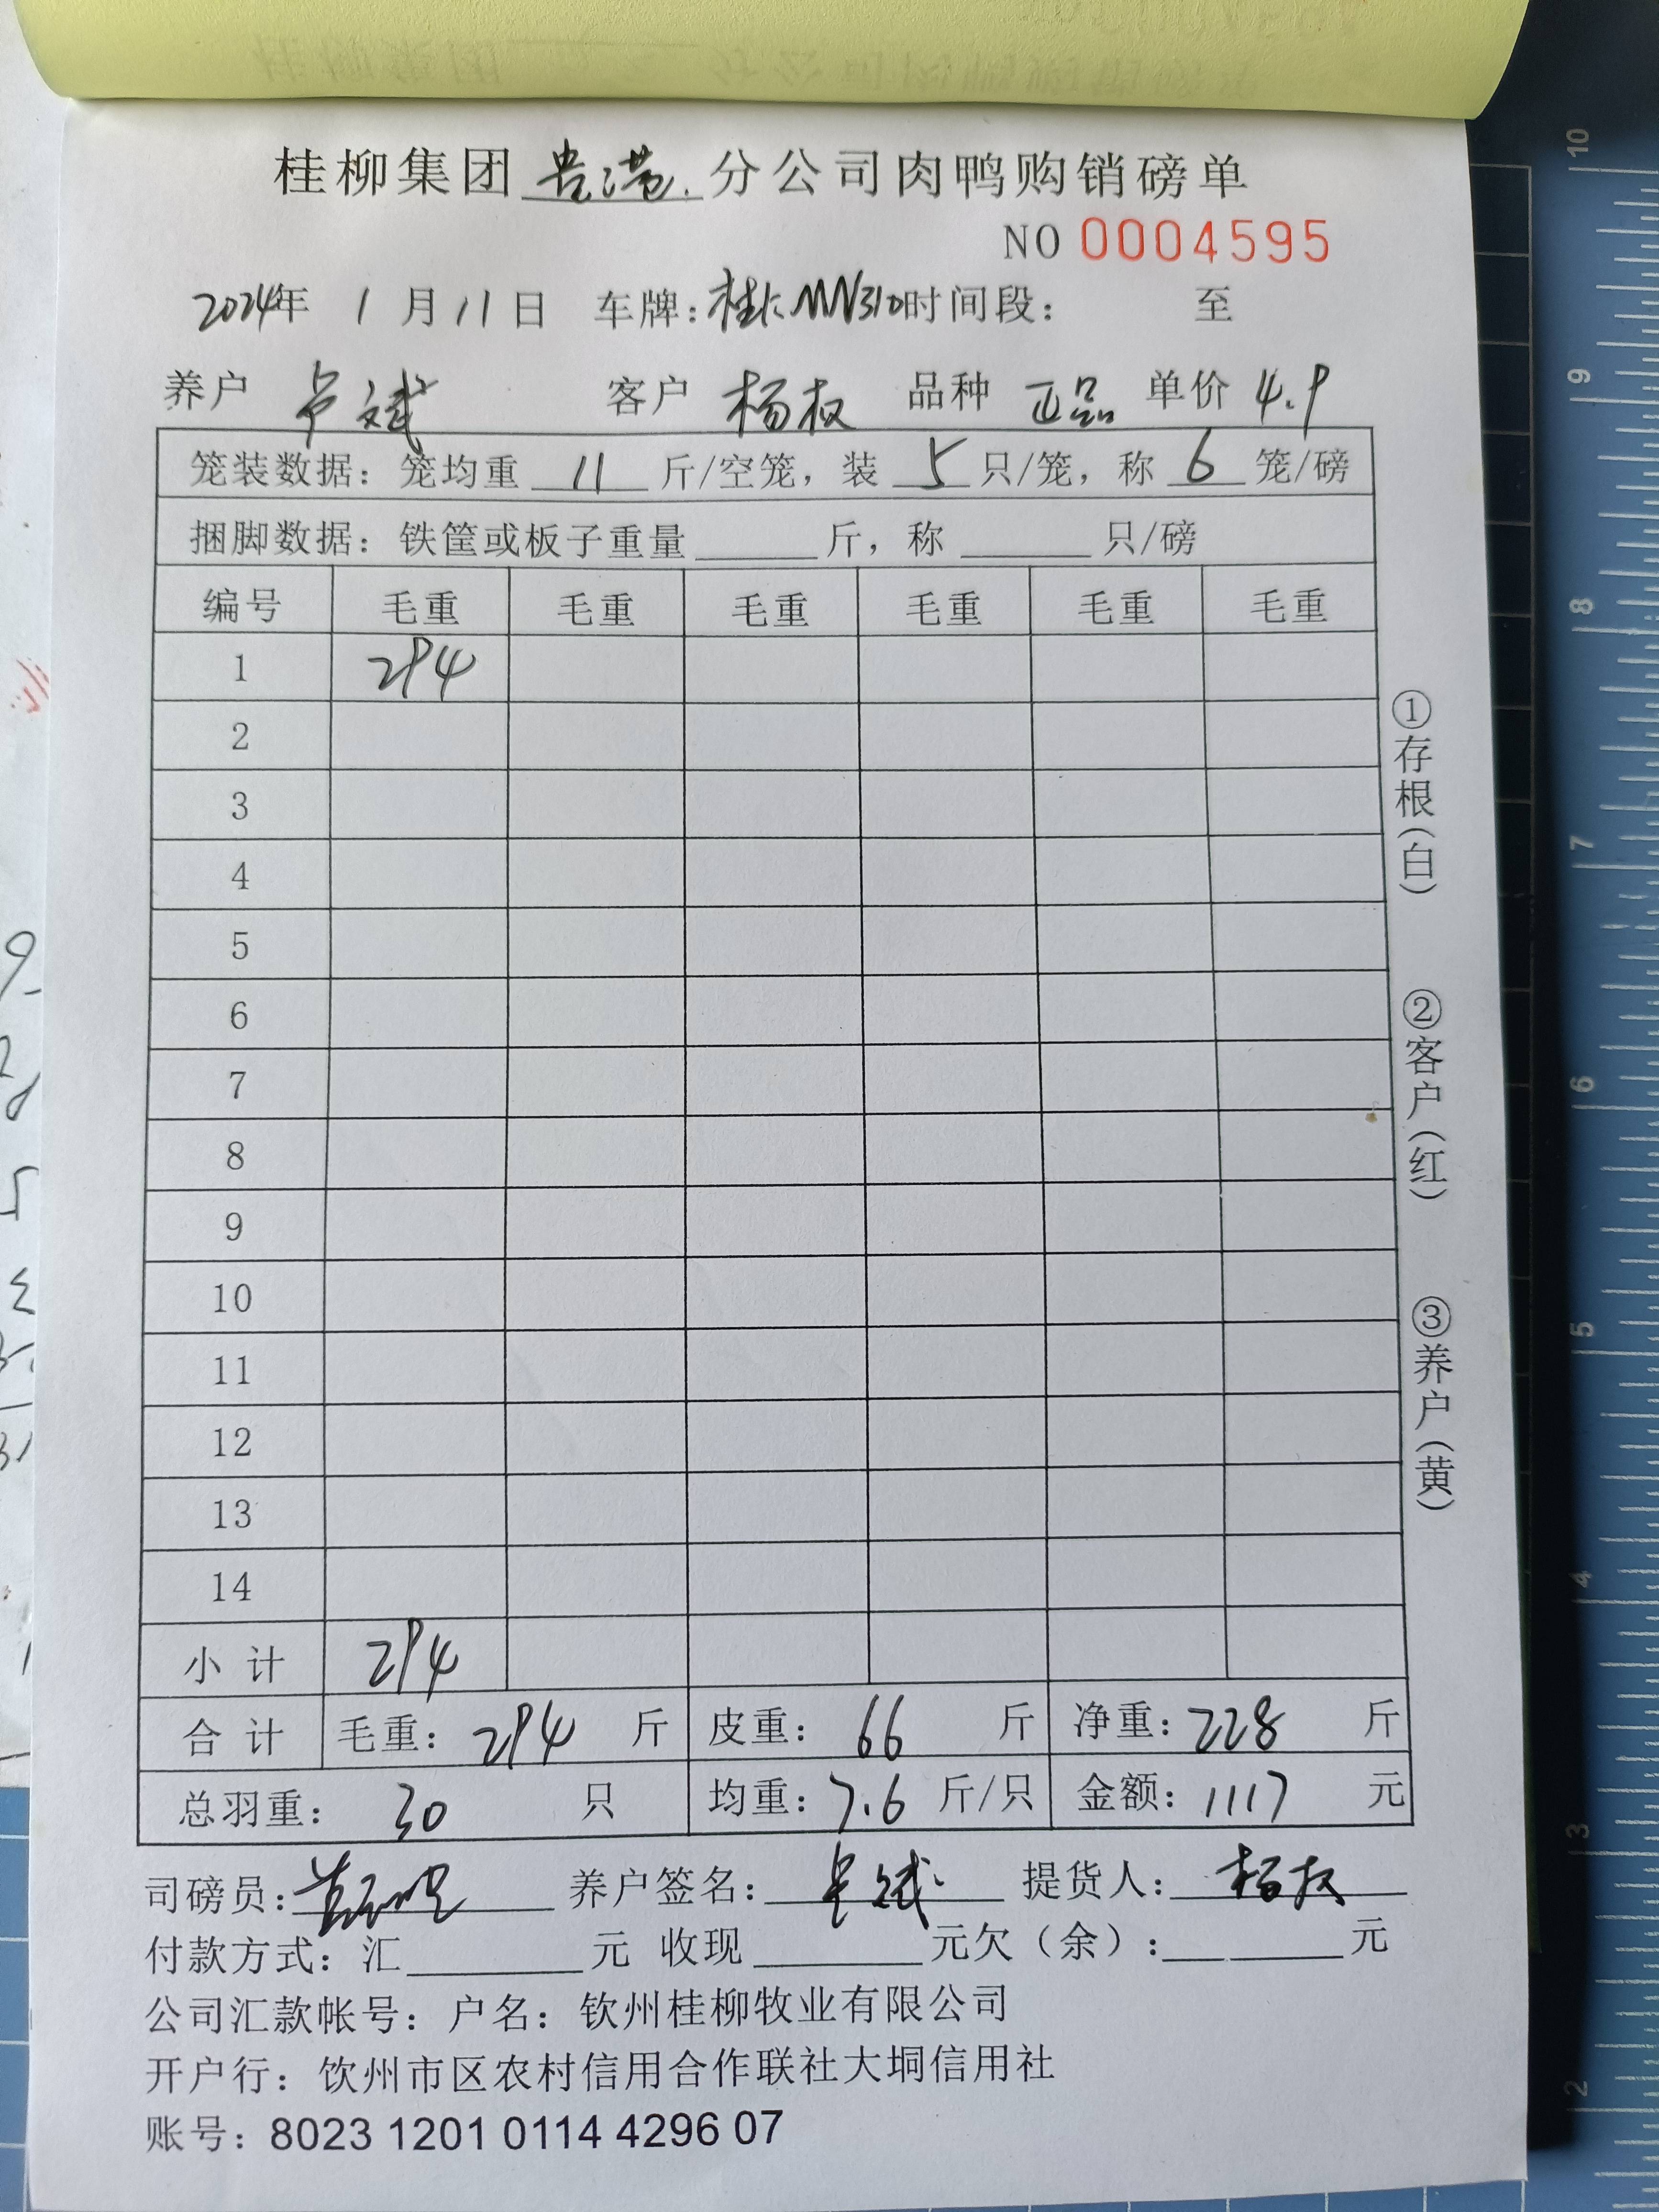 桂柳集团贵港分公司肉鸭购销磅单
NO 0004595
2024年 1月11日 车牌: 时间段: 至
养户 卢斌 客户 杨权 品种 正品 单价 4.9
笼装数据: 笼均重 11 斤/空笼, 装 5 只/笼, 称 6 笼/磅
捆脚数据: 铁筐或板子重量____斤, 称____只/磅
编号 毛重 毛重 毛重 毛重 毛重 毛重
1 294
2
3
4
5
6
7
8
9
10
11
12
13
14
小计 294
合计 毛重: 294 斤 皮重: 66 斤 净重: 228 斤
总羽重: 30 只 均重: 7.6 斤/只 金额: 1117 元
司磅员: 养户签名: 卢斌 提货人: 杨权
付款方式: 汇____元 收现____元欠(余):____元
公司汇款帐号: 户名: 钦州桂柳牧业有限公司
开户行: 钦州市区农村信用合作联社大垌信用社
账号: 8023 1201 0114 4296 07
①存根(白)
②客户(红)
③养户(黄)
10
9
8
7
6
5
4
3
2